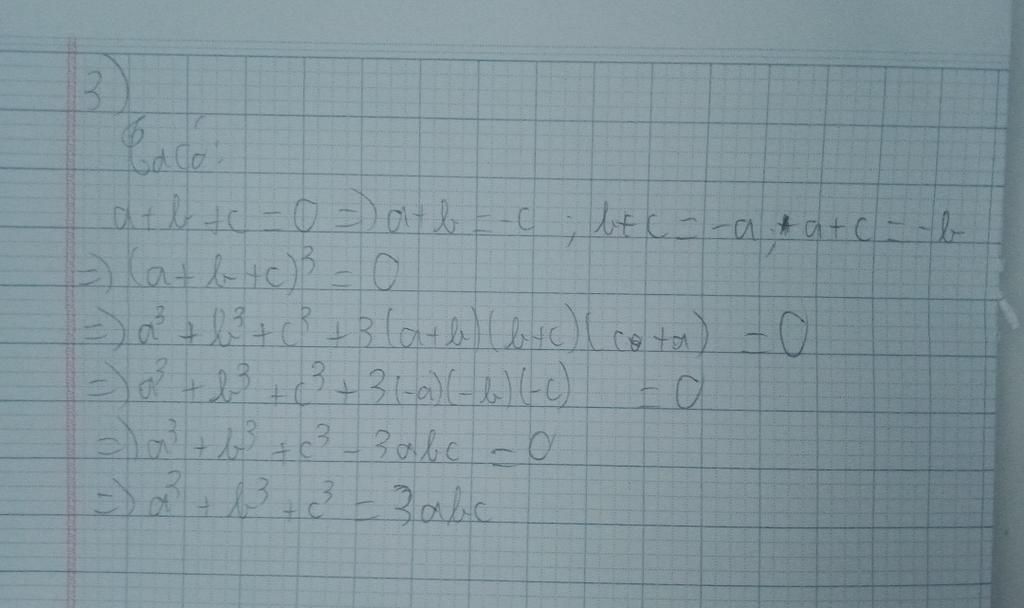 3)
Ta có:
a + b + c = 0 => a + b = -c ; b + c = -a ; a + c = -b
=> (a + b + c)³ = 0
=> a³ + b³ + c³ + 3(a+b)(b+c)(c+a) = 0
=> a³ + b³ + c³ + 3(-a)(-b)(-c) = 0
=> a³ + b³ + c³ - 3abc = 0
=> a³ + b³ + c³ = 3abc